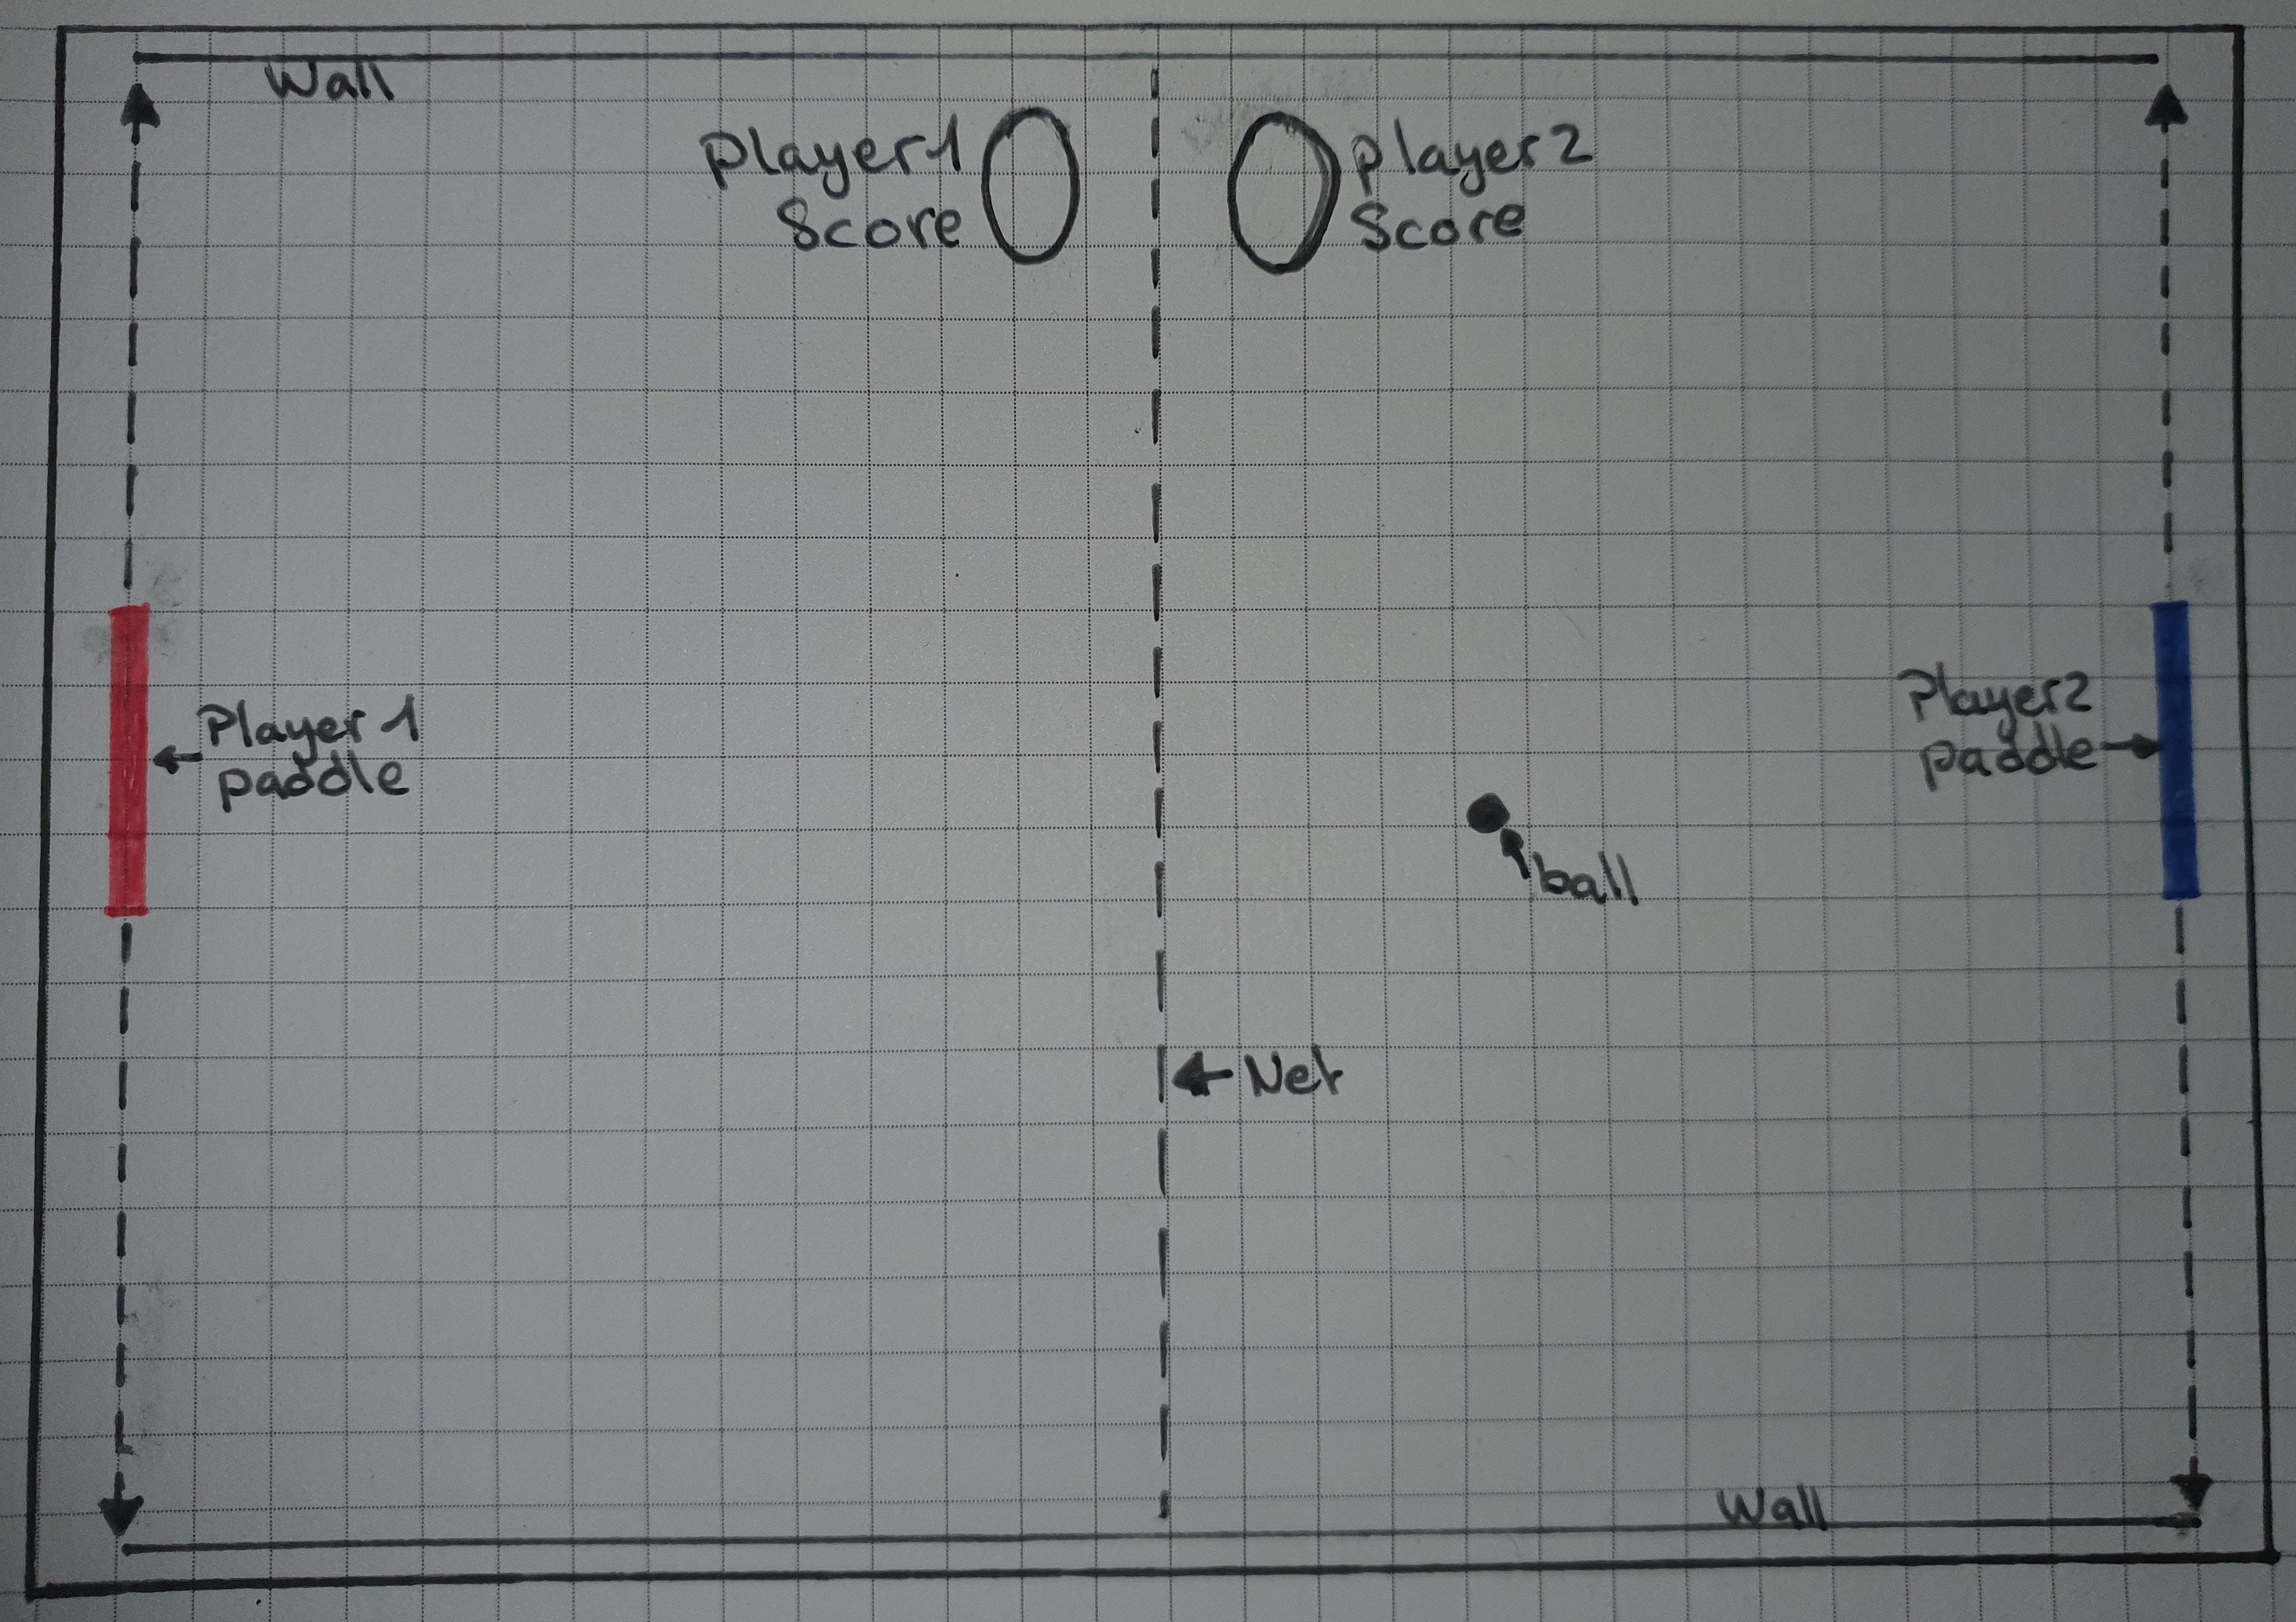 Wall
Player1
Score
Player2
Score
Player1
paddle
Player2
paddle
ball
Net
Wall